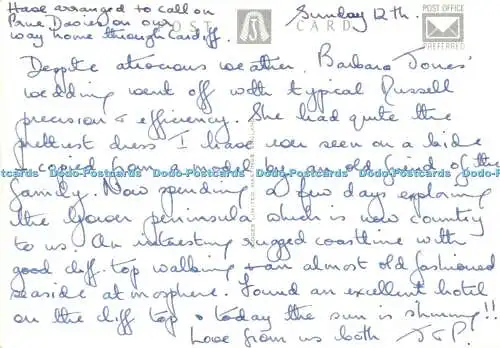 Have arranged to call on
Prue Davies on our
way home through Cardiff.
POST CARD
Sunday 12th.
POST OFFICE
PREFERRED
Despite atrocious weather, Barbara Jones'
wedding went off with typical Russell
precision & efficiency. She had quite the
prettiest dress I have ever seen on a bride
copied from a model by an old friend of the
family. Now spending a few days exploring
the Gower peninsula which is new country
to us. An interesting rugged coastline with
good cliff-top walking & an almost old fashioned
seaside atmosphere. Found an excellent hotel,
on the cliff top & today the sun is shining!!
Love from us both J & P.
Dodo-Postcards Dodo-Postcards Dodo-Postcards Dodo-Postcards Dodo-Postcards